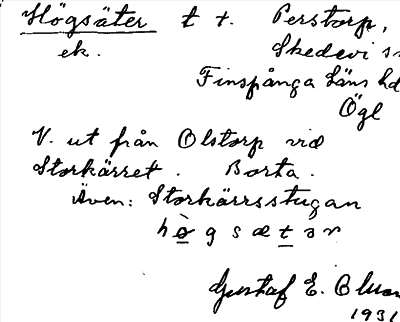 Högsäter t t. Perstorp,
ek. Skedevi sn
Finspånga läns hd
Ögl
V. ut från Olstorp vid
Storkärret. Borta.
Även: Storkärrsstugan
hø̀gsætər
Gustaf E.
1931